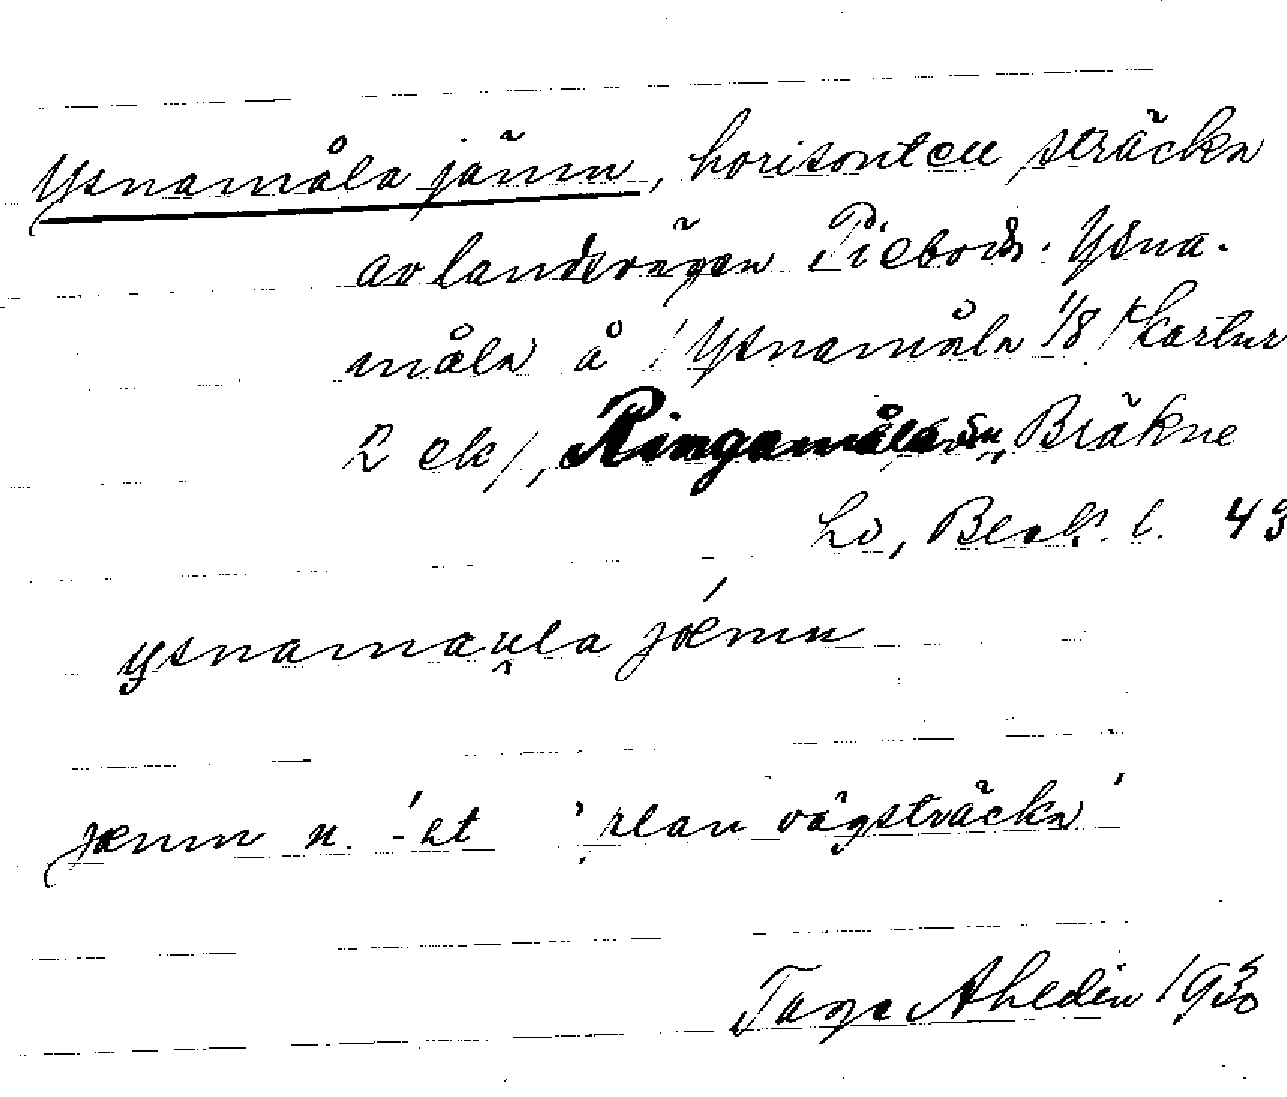 Ysnamåla jämn, horisontell sträcka
av landsvägen Piebods - Ysna-
måla å /Ysnamåla 1/8/ kartur
2 ek/, Ringamåla sn, Bräkne
hd, Bl. 43
ysnamau̯la jǽmn
jæmn n. -ět 'plan vägsträcka'
Tage Ahldin 1930